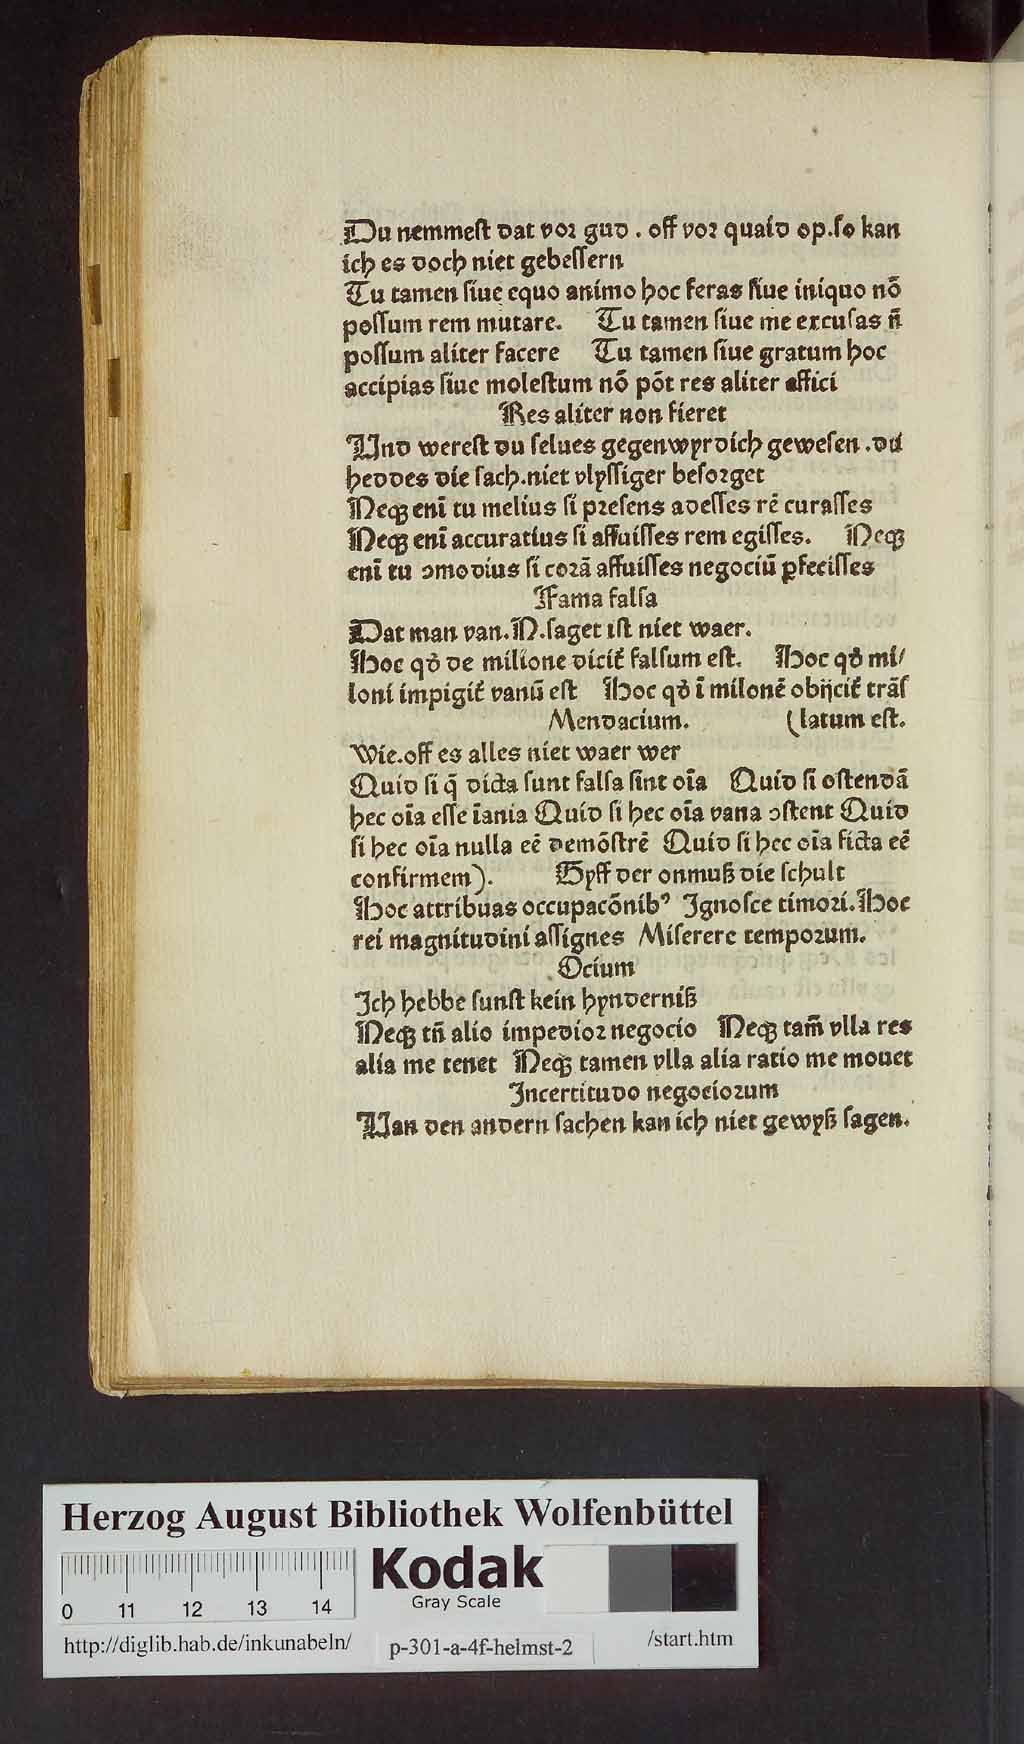 Du nemmeſt dat voꝛ gud . off voꝛ quaid op.ſo kan
ich es doch niet gebeſſern
Tu tamen ſiue equo animo hoc feras ſiue iniquo nō
poſſum rem mutare. Tu tamen ſiue me excuſas n̄
poſſum aliter facere Tu tamen ſiue gratum hoc
accipias ſiue moleſtum nō pōt res aliter effici
Res aliter non fieret
Und wereſt du ſelues gegenwyrdich geweſen .du
heddes die ſach.niet vlyſſiger beſoꝛget
Neqꝫ enī tu melius ſi pꝛeſens adeſſes rē curaſſes
Neqꝫ enī accuratius ſi affuiſſes rem egiſſes. Neqꝫ
enī tu ↄmodius ſi coꝛā affuiſſes negociū ꝑfeciſſes
Fama falſa
Dat man van.N.ſaget ıſt niet waer.
Hoc qd̓ de milione dicit᷑ falſum eſt. Hoc qd̓ mi/
loni impigit᷑ vanū eſt Hoc qd̓ ī milonē obijcit᷑ trāſ
Mendacium. (latum eſt.
Wie.off es alles niet waer wer
Quid ſi q̄ dicta ſunt falſa ſint oīa Quid ſi oſtendā
hec oīa eſſe īania Quid ſi hec oīa vana ↄſtent Quid
ſi hec oīa nulla eē demōſtrē Quid ſi hec oīa ficta eē
confirmem). Gyff der onmuß die ſchult
Hoc attribuas occupacōnibꝰ Ignoſce timoꝛi. Hoc
rei magnitudini aſſignes Miſerere tempoꝛum.
Ocium
Ich hebbe ſunſt kein hynderniß
Neqꝫ tn̄ alio impedioꝛ negocio Neqꝫ tam̄ vlla res
alia me tenet Neqꝫ tamen vlla alia ratio me mouet
Incertitudo negocioꝛum
Van den andern ſachen kan ich niet gewyß ſagen.
Herzog August Bibliothek Wolfenbüttel
Kodak
Gray Scale
0 11 12 13 14
http://diglib.hab.de/inkunabeln/ p-301-a-4f-helmst-2 /start.htm